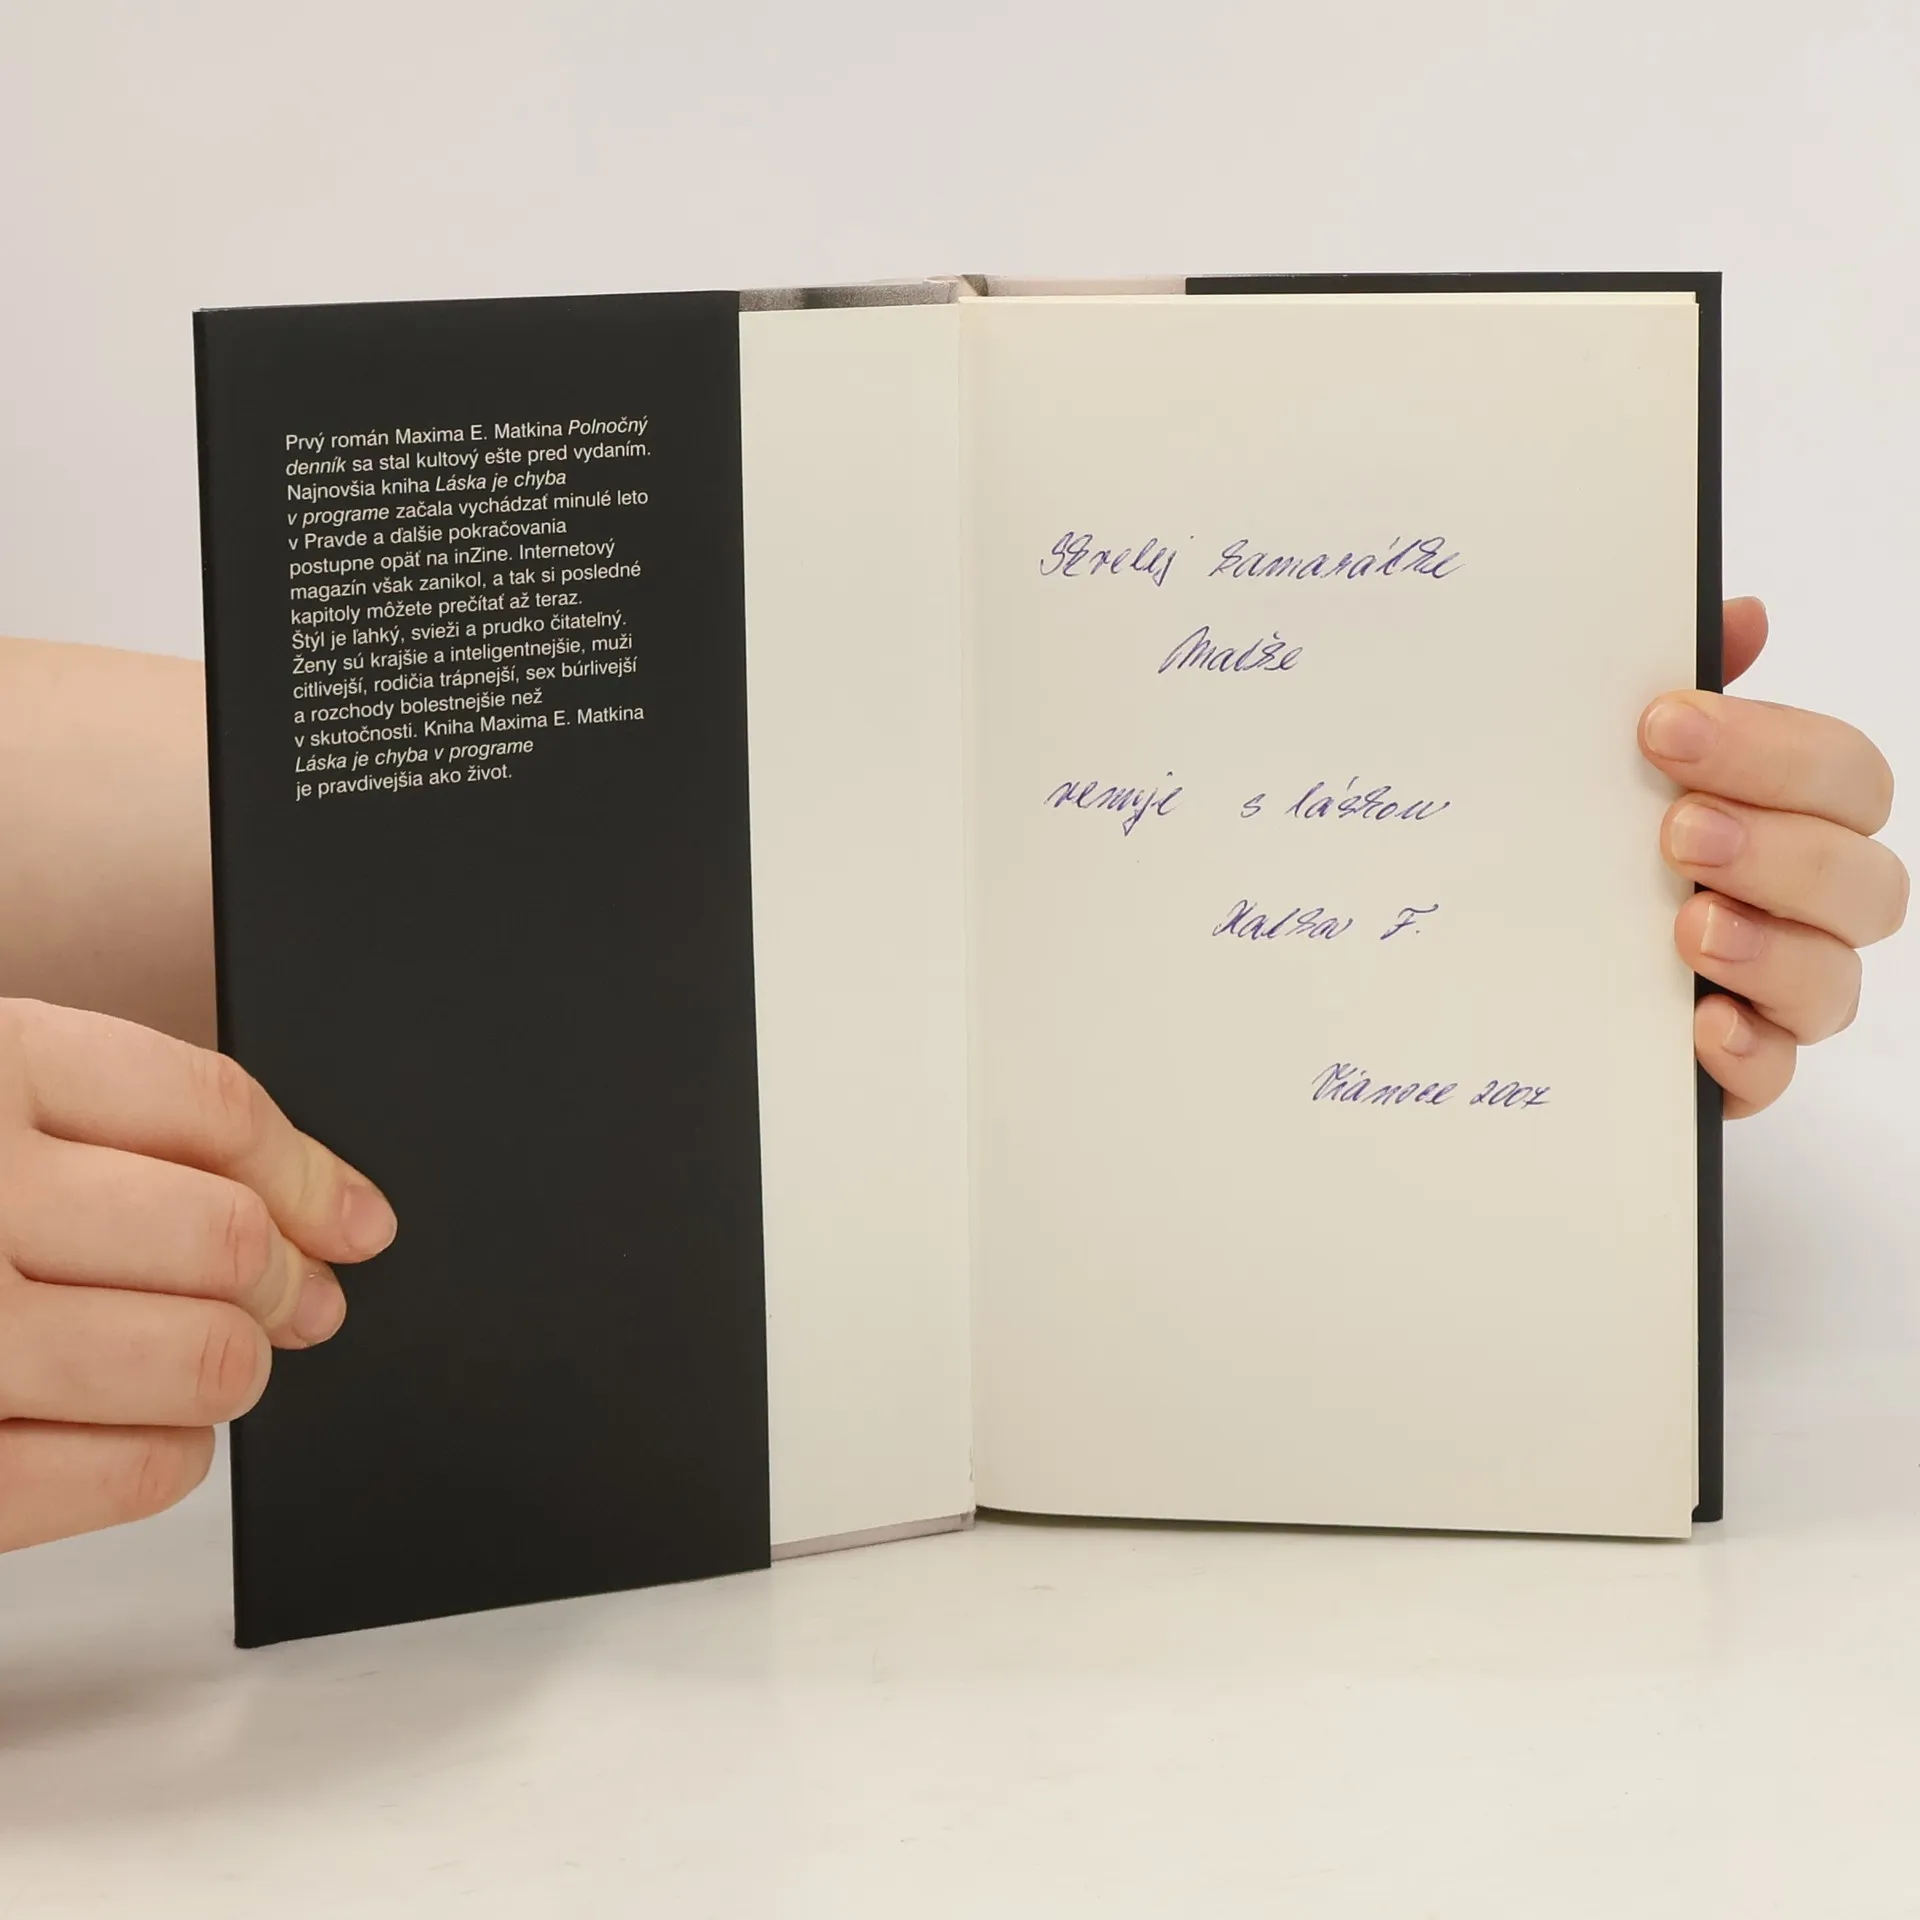 Prvý román Maxima E. Matkina Polnočný
denník sa stal kultový ešte pred vydaním.
Najnovšia kniha Láska je chyba
v programe začala vychádzať minulé leto
v Pravde a ďalšie pokračovania
postupne opäť na inZine. Internetový
magazín však zanikol, a tak si posledné
kapitoly môžete prečítať až teraz.
Štýl je ľahký, svieži a prudko čitateľný.
Ženy sú krajšie a inteligentnejšie, muži
citlivejší, rodičia trápnejší, sex búrlivejší
a rozchody bolestnejšie než
v skutočnosti. Kniha Maxima E. Matkina
Láska je chyba v programe
je pravdivejšia ako život.
Skvelej kamarátke
venuje s láskou
Katka F.
Vianoce 2007